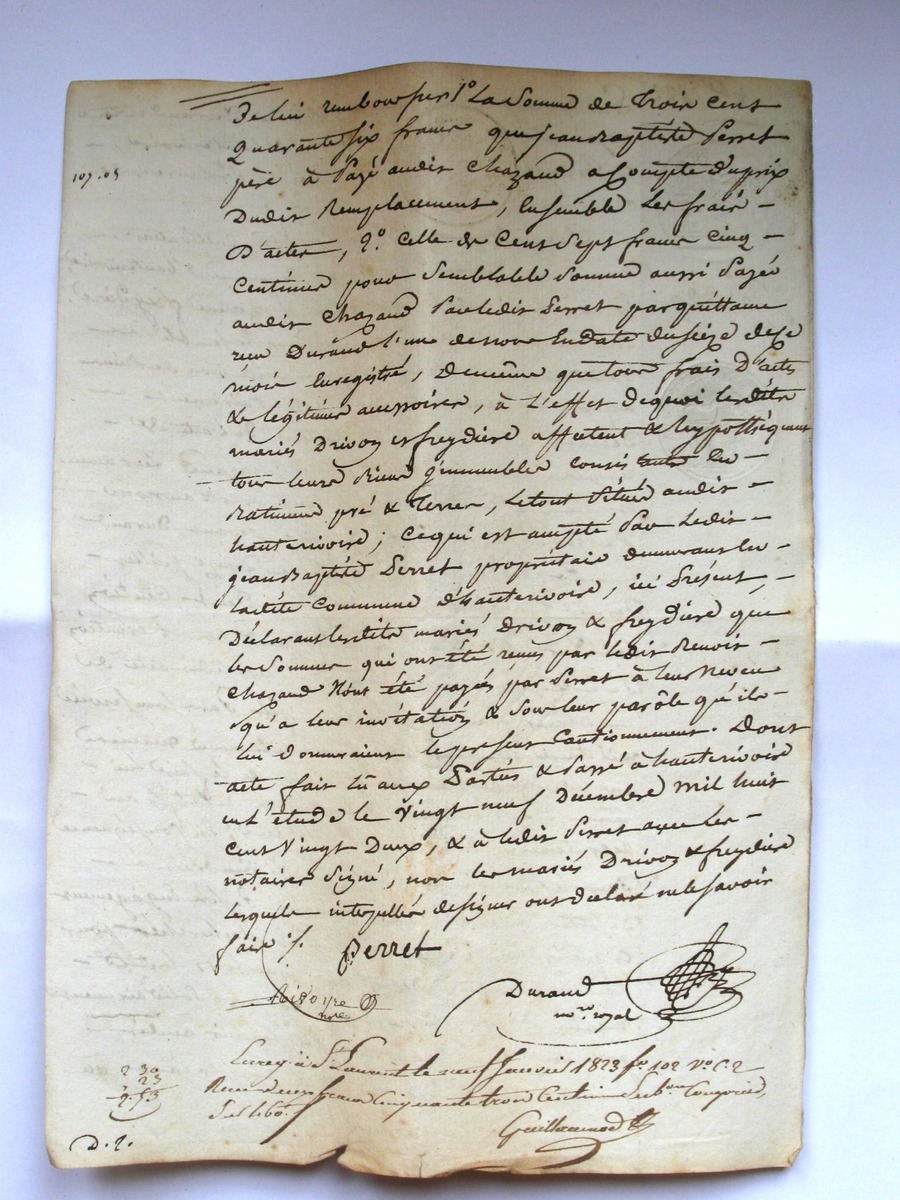 De lui rembourser 1º La Somme de Trois Cent
Quarante Six francs que Jean Baptiste Perret
père à Payé audit Chazaud a Compte du prix
107.05
Dudit Remplacement, Ensemble Les frais -
D'actes, 2º. Celle de Cent Sept francs Cinq -
Centimes pour Semblable Somme aussi Payée
audit Chazaud Par ledit Perret par quittance
reçu Durand l'un de nous En date du seize de ce
mois Enregistré, De même que tous frais D'actes
& légitimes accessoires, à L'effet de quoi lesdits
mariés Drivon et freydière affectent & hypothèquent
- tous leurs Biens immeubles Consistants En -
Batiment pré & Terres, Le tout Situé audit -
hauterivoire; Ce qui est accepté Par Ledit -
Jean Baptiste Perret propriétaire demeurant En -
ladite Commune D'hauterivoire, ici Présent, -
Déclarant lesdits mariés Drivon & freydière que
les Sommes qui ont été remis par ledit Benoit -
Chazaud N'ont été payés par Perret à leur Neveu
qu'a leur invitation & Sous leur parôle qu'ils -
lui donneraient le present Cautionnement. Dont
acte fait lû aux Partiés & Passé à hauterivoire
en L'étude le Vingt neuf Décembre mil huit
cent Vingt Deux, & à ledit Perret avec Les -
notaires Signé, non les mariés Drivon & freydière
lesquels interpellés de signer ont déclaré ne le savoir
faire ./.
Perret
Durand
nore royal
nore
Enreg. à St. Laurent le neuf Janvier 1823 fo. 102 Vo. C. 2
Reçu deux francs Cinquante trois Centimes Subon Compris,
2 30
23
2.53
Guillermod
D. 2.